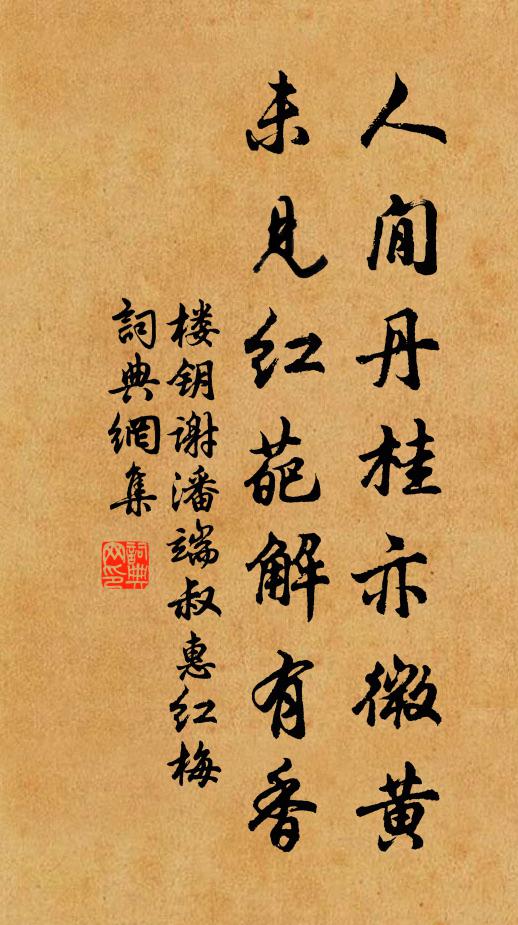 人间丹桂亦微黄
未见红葩解有香
楼钥谢潘端叔惠红梅
詞典網集
詞典網印